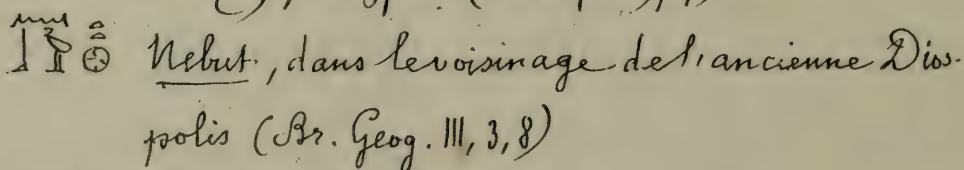 𓈖𓃀𓅡𓏏𓏏𓊖 Nebut., dans le voisinage de l'ancienne Dios-
polis (Br. Geog. III, 3, 8)